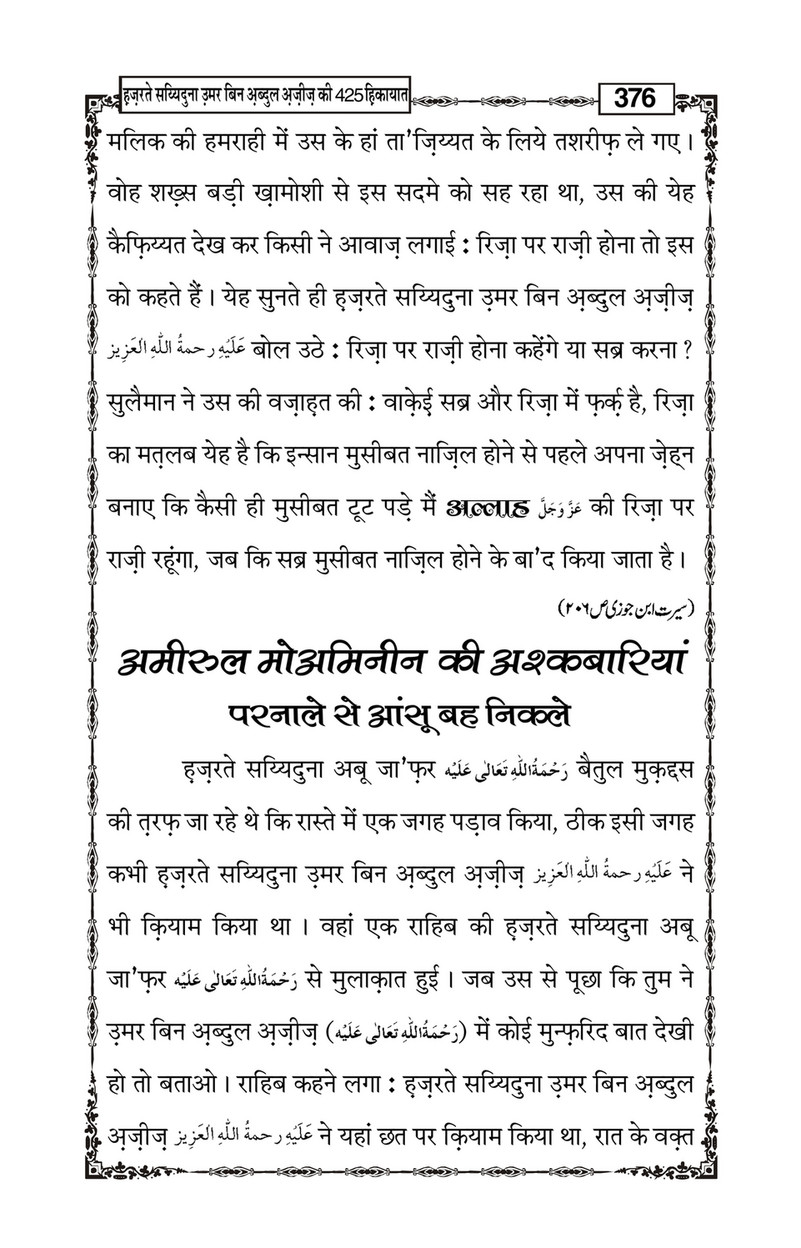 ह़ज़रते सय्यिदुना उ़मर बिन अ़ब्दुल अ़ज़ीज़ की 425 हिकायात
376
मलिक की हमराही में उस के हां ता'ज़िय्यत के लिये तशरीफ़ ले गए ।
वोह शख़्स बड़ी ख़ामोशी से इस सदमे को सह रहा था, उस की येह
कैफ़िय्यत देख कर किसी ने आवाज़ लगाई : रिज़ा पर राज़ी होना तो इस
को कहते हैं । येह सुनते ही ह़ज़रते सय्यिदुना उ़मर बिन अ़ब्दुल अ़ज़ीज़
عَلَيْهِ رحمةُ اللّٰهِ العَزِيز बोल उठे : रिज़ा पर राज़ी होना कहेंगे या सब्र करना ?
सुलैमान ने उस की वज़ाह़त की : वाक़ेई सब्र और रिज़ा में फ़र्क़ है, रिज़ा
का मत़लब येह है कि इन्सान मुसीबत नाज़िल होने से पहले अपना ज़ेह्न
बनाए कि कैसी ही मुसीबत टूट पड़े मैं अल्लाह عَزَّوَجَلَّ की रिज़ा पर
राज़ी रहूंगा, जब कि सब्र मुसीबत नाज़िल होने के बा'द किया जाता है ।
(سیرت ابن جوزی ص ۲۰۶)
अमीरुल मोअमिनीन की अश्कबारियां
परनाले से आंसू बह निकले
ह़ज़रते सय्यिदुना अबू जा'फ़र رَحْمَةُ اللّٰهِ تَعَالٰى عَلَيْه बैतुल मुक़द्दस
की त़रफ़ जा रहे थे कि रास्ते में एक जगह पड़ाव किया, ठीक इसी जगह
कभी ह़ज़रते सय्यिदुना उ़मर बिन अ़ब्दुल अ़ज़ीज़ عَلَيْهِ رحمةُ اللّٰهِ العَزِيز ने
भी क़ियाम किया था । वहां एक राहिब की ह़ज़रते सय्यिदुना अबू
जा'फ़र رَحْمَةُ اللّٰهِ تَعَالٰى عَلَيْه से मुलाक़ात हुई । जब उस से पूछा कि तुम ने
उ़मर बिन अ़ब्दुल अ़ज़ीज़ (رَحْمَةُ اللّٰهِ تَعَالٰى عَلَيْه) में कोई मुन्फ़रिद बात देखी
हो तो बताओ । राहिब कहने लगा : ह़ज़रते सय्यिदुना उ़मर बिन अ़ब्दुल
अ़ज़ीज़ عَلَيْهِ رحمةُ اللّٰهِ العَزِيز ने यहां छत पर क़ियाम किया था, रात के वक़्त